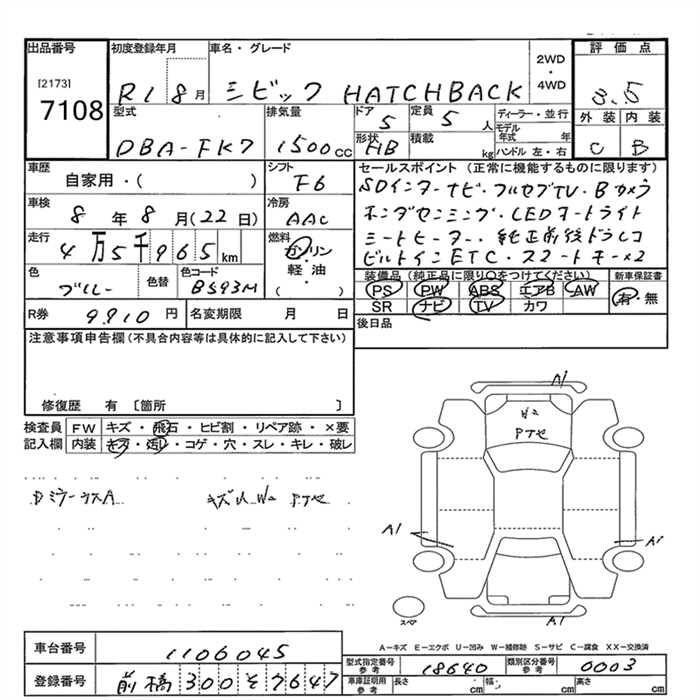 出品番号 初度登録年月 車名・グレード 評価点
[2173] 2WD・4WD
7108 R1 8月 シビック HATCHBACK 3.5
型式 排気量 ドア 定員 ディーラー・並行 外装 内装
DBA-FK7 1500cc 5 5人 モデル年式 年 C B
形状 積載 ハンドル 左・右
HB kg
車歴 シフト セールスポイント (正常に機能するものに限ります)
自家用・( ) F6 SDインターナビ・フルセグTV・Bカメラ
車検 冷房 ホンダセンシング・LEDオートライト
8年8月(22日) AAC シートヒーター・純正前後ドラレコ
走行 燃料 ビルトインETC・スマートキー×2
4万5千965km ガソリン・軽油・( )
色 色替 色コード 装備品(純正品に限り○をつけてください) 新車保証書
ブルー B593M PS PW ABS エアB AW 有・無
SR ナビ TV カワ
R券 9.910円 名変期限 月 日 後日品
注意事項申告欄(不具合内容等は具体的に記入して下さい)
修復歴 有 [箇所 ]
検査員記入欄 FW キズ・飛石・ヒビ割・リペア跡・×要
内装 キズ・汚レ・コゲ・穴・スレ・キレ・破レ
A1
W2
Pアセ
DミラーウスA キズ小 W2 Pアセ
A1
A1
A1
スペア
A-キズ E-エクボ U-凹み W-補修跡 S-サビ C-腐食 XX-交換済
車台番号 1106045
型式指定番号参考 18640 類別区分番号参考 0003
登録番号 前橋 300 そ 7647
車庫証明用参考 長さ cm 幅 cm 高さ cm